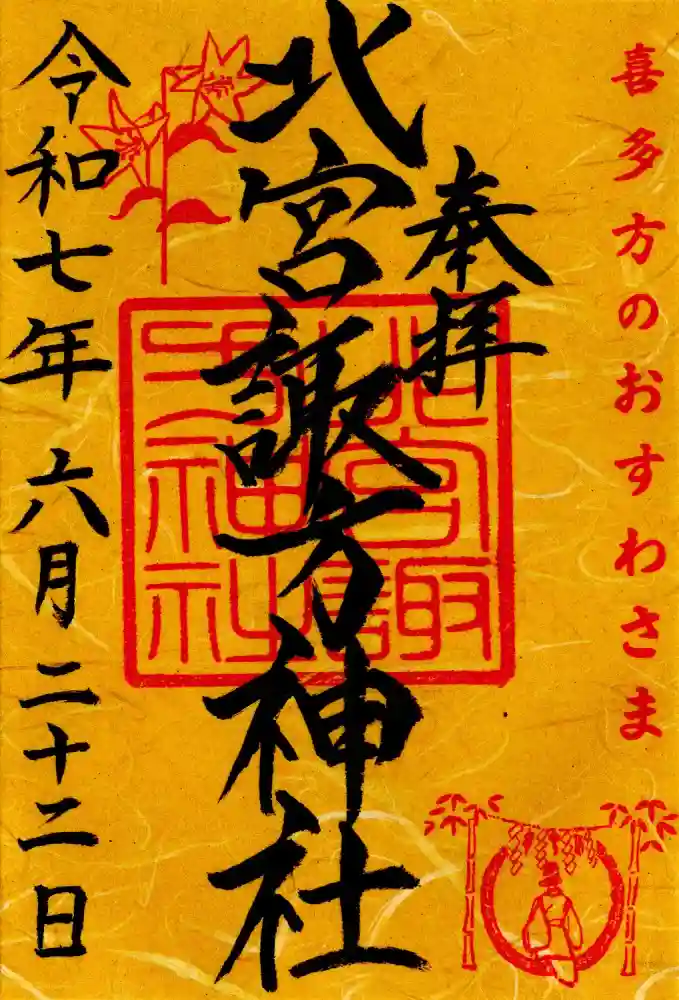 喜多方のおすわさま
奉拝
北宮諏方神社
北宮諏
方神社
令和七年 六月二十二日